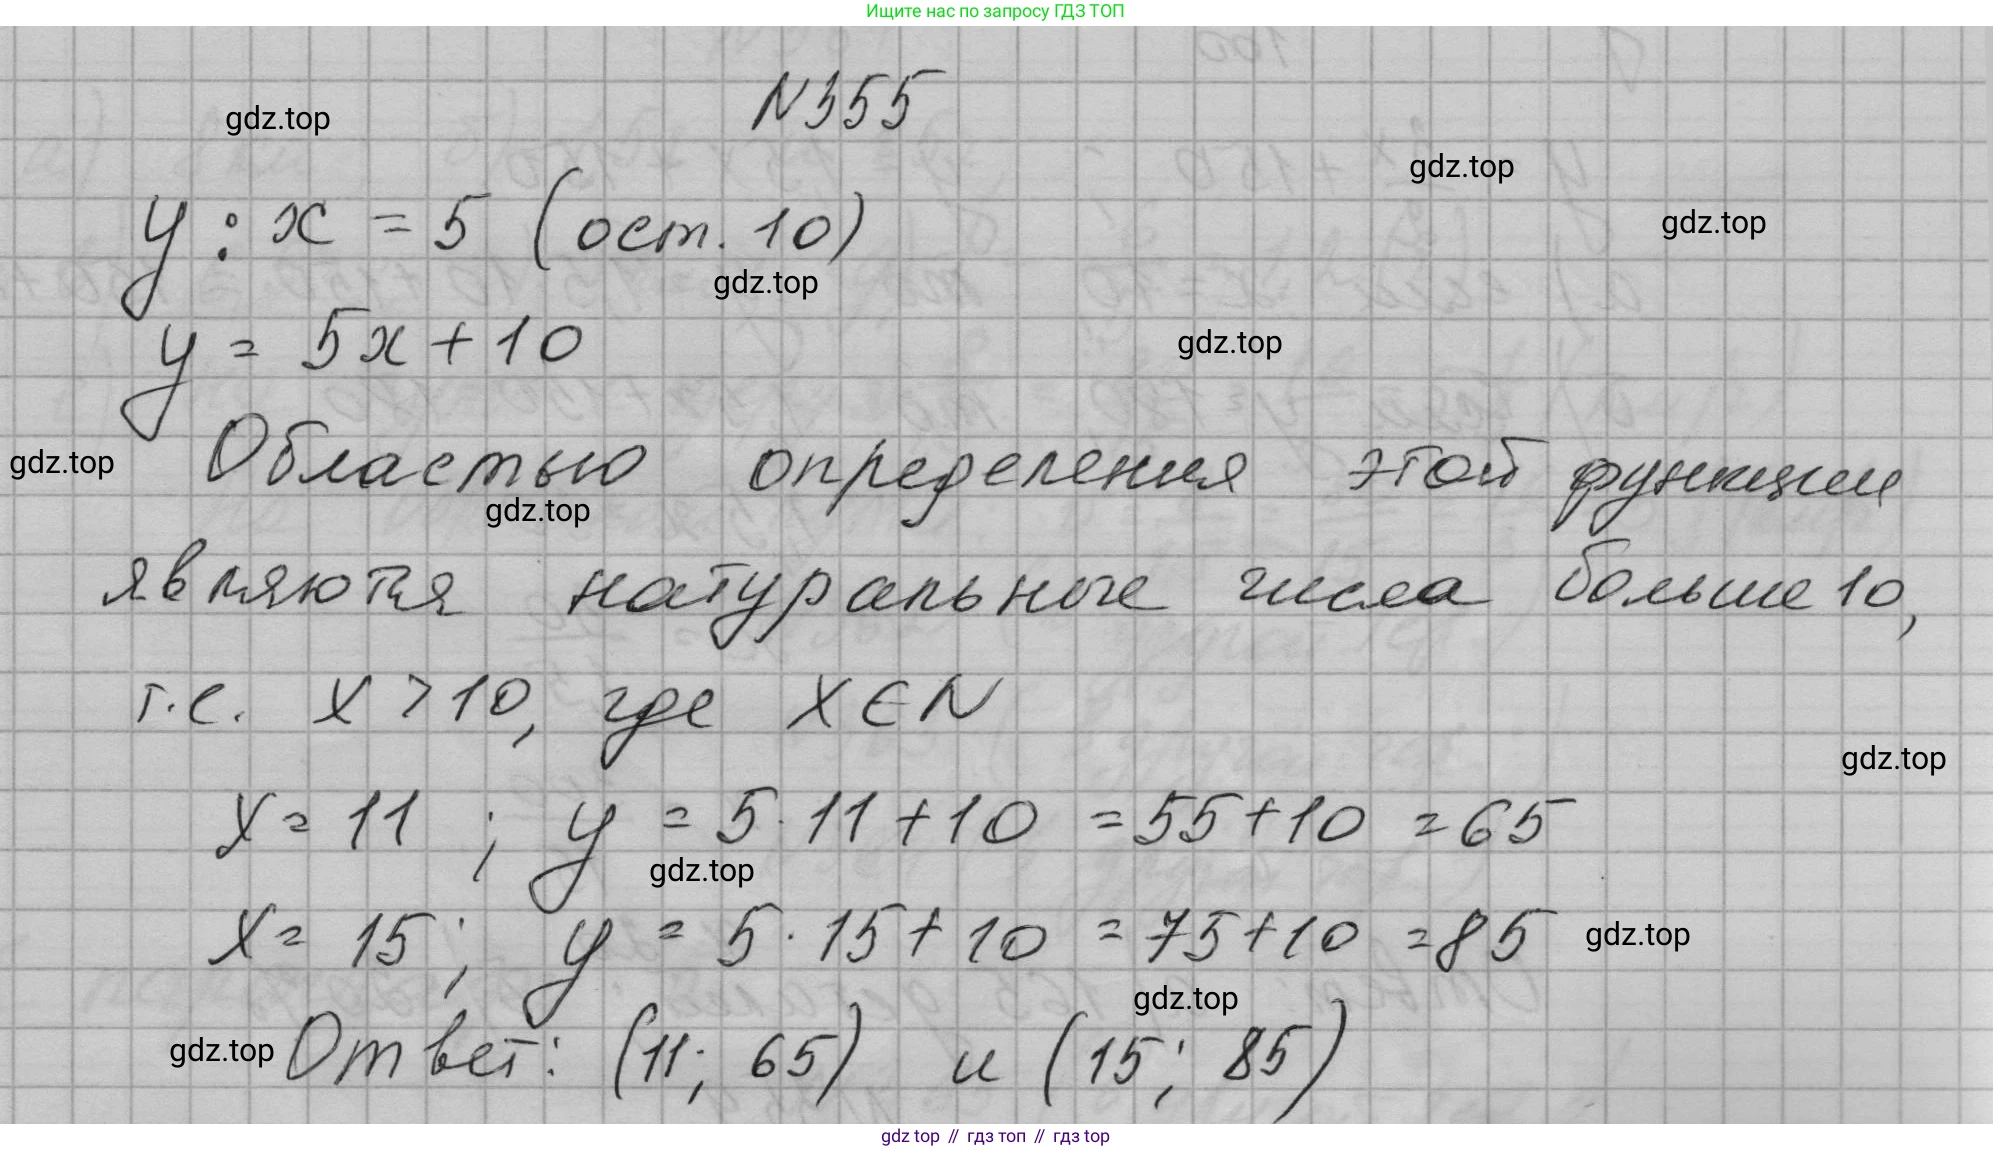 Ищите нас по запросу ГДЗ ТОП
N355
gdz.top
gdz.top
y : x = 5 (ост. 10)
gdz.top
gdz.top
y = 5x + 10
gdz.top
Областью определения этой функции
gdz.top
gdz.top
являются натуральные числа больше 10,
т.е. x > 10, где x ∈ N
gdz.top
x = 11 ; y = 5 · 11 + 10 = 55 + 10 = 65
gdz.top
x = 15 ; y = 5 · 15 + 10 = 75 + 10 = 85
gdz.top
gdz.top
gdz.top
Ответ: (11; 65) и (15; 85)
gdz top // гдз топ // гдз top